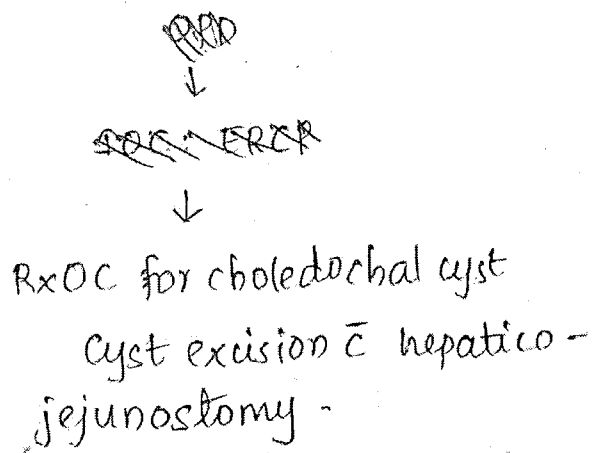 ↓
IOC: ERCP
↓
RxOC for choledochal cyst
Cyst excision c̄ hepatico-
jejunostomy.